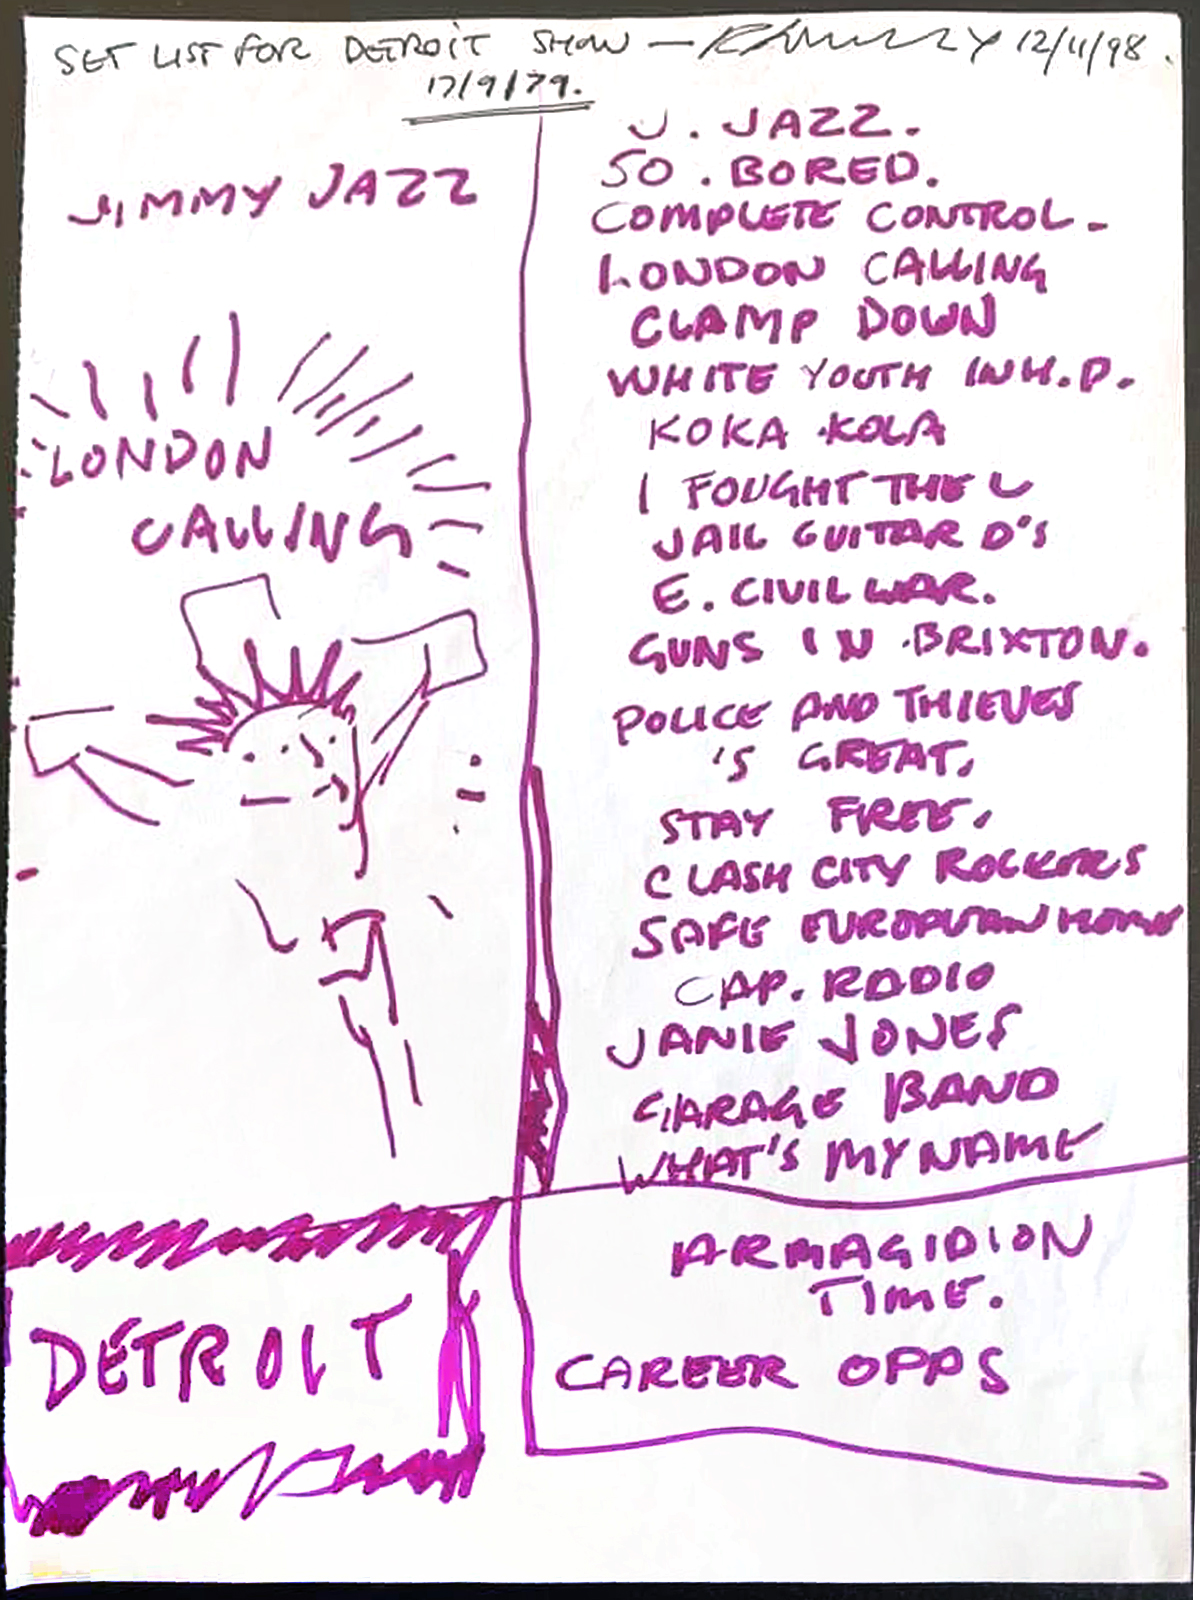 SET LIST FOR DETROIT SHOW — 12/11/98.
17/9/79.
JIMMY JAZZ
LONDON
CALLING
DETROIT
J. JAZZ.
SO. BORED.
COMPLETE CONTROL-
LONDON CALLING
CLAMP DOWN
WHITE YOUTH IN H.P.
KOKA KOLA
I FOUGHT THE L
JAIL GUITAR D'S
E. CIVIL WAR.
GUNS IN BRIXTON.
POLICE AND THIEVES
'S GREAT,
STAY FREE,
CLASH CITY ROCKERS
SAFE EUROPEAN HOME
CAP. RADIO
JANIE JONES
GARAGE BAND
WHAT'S MY NAME
ARMAGIDION
TIME.
CAREER OPPS